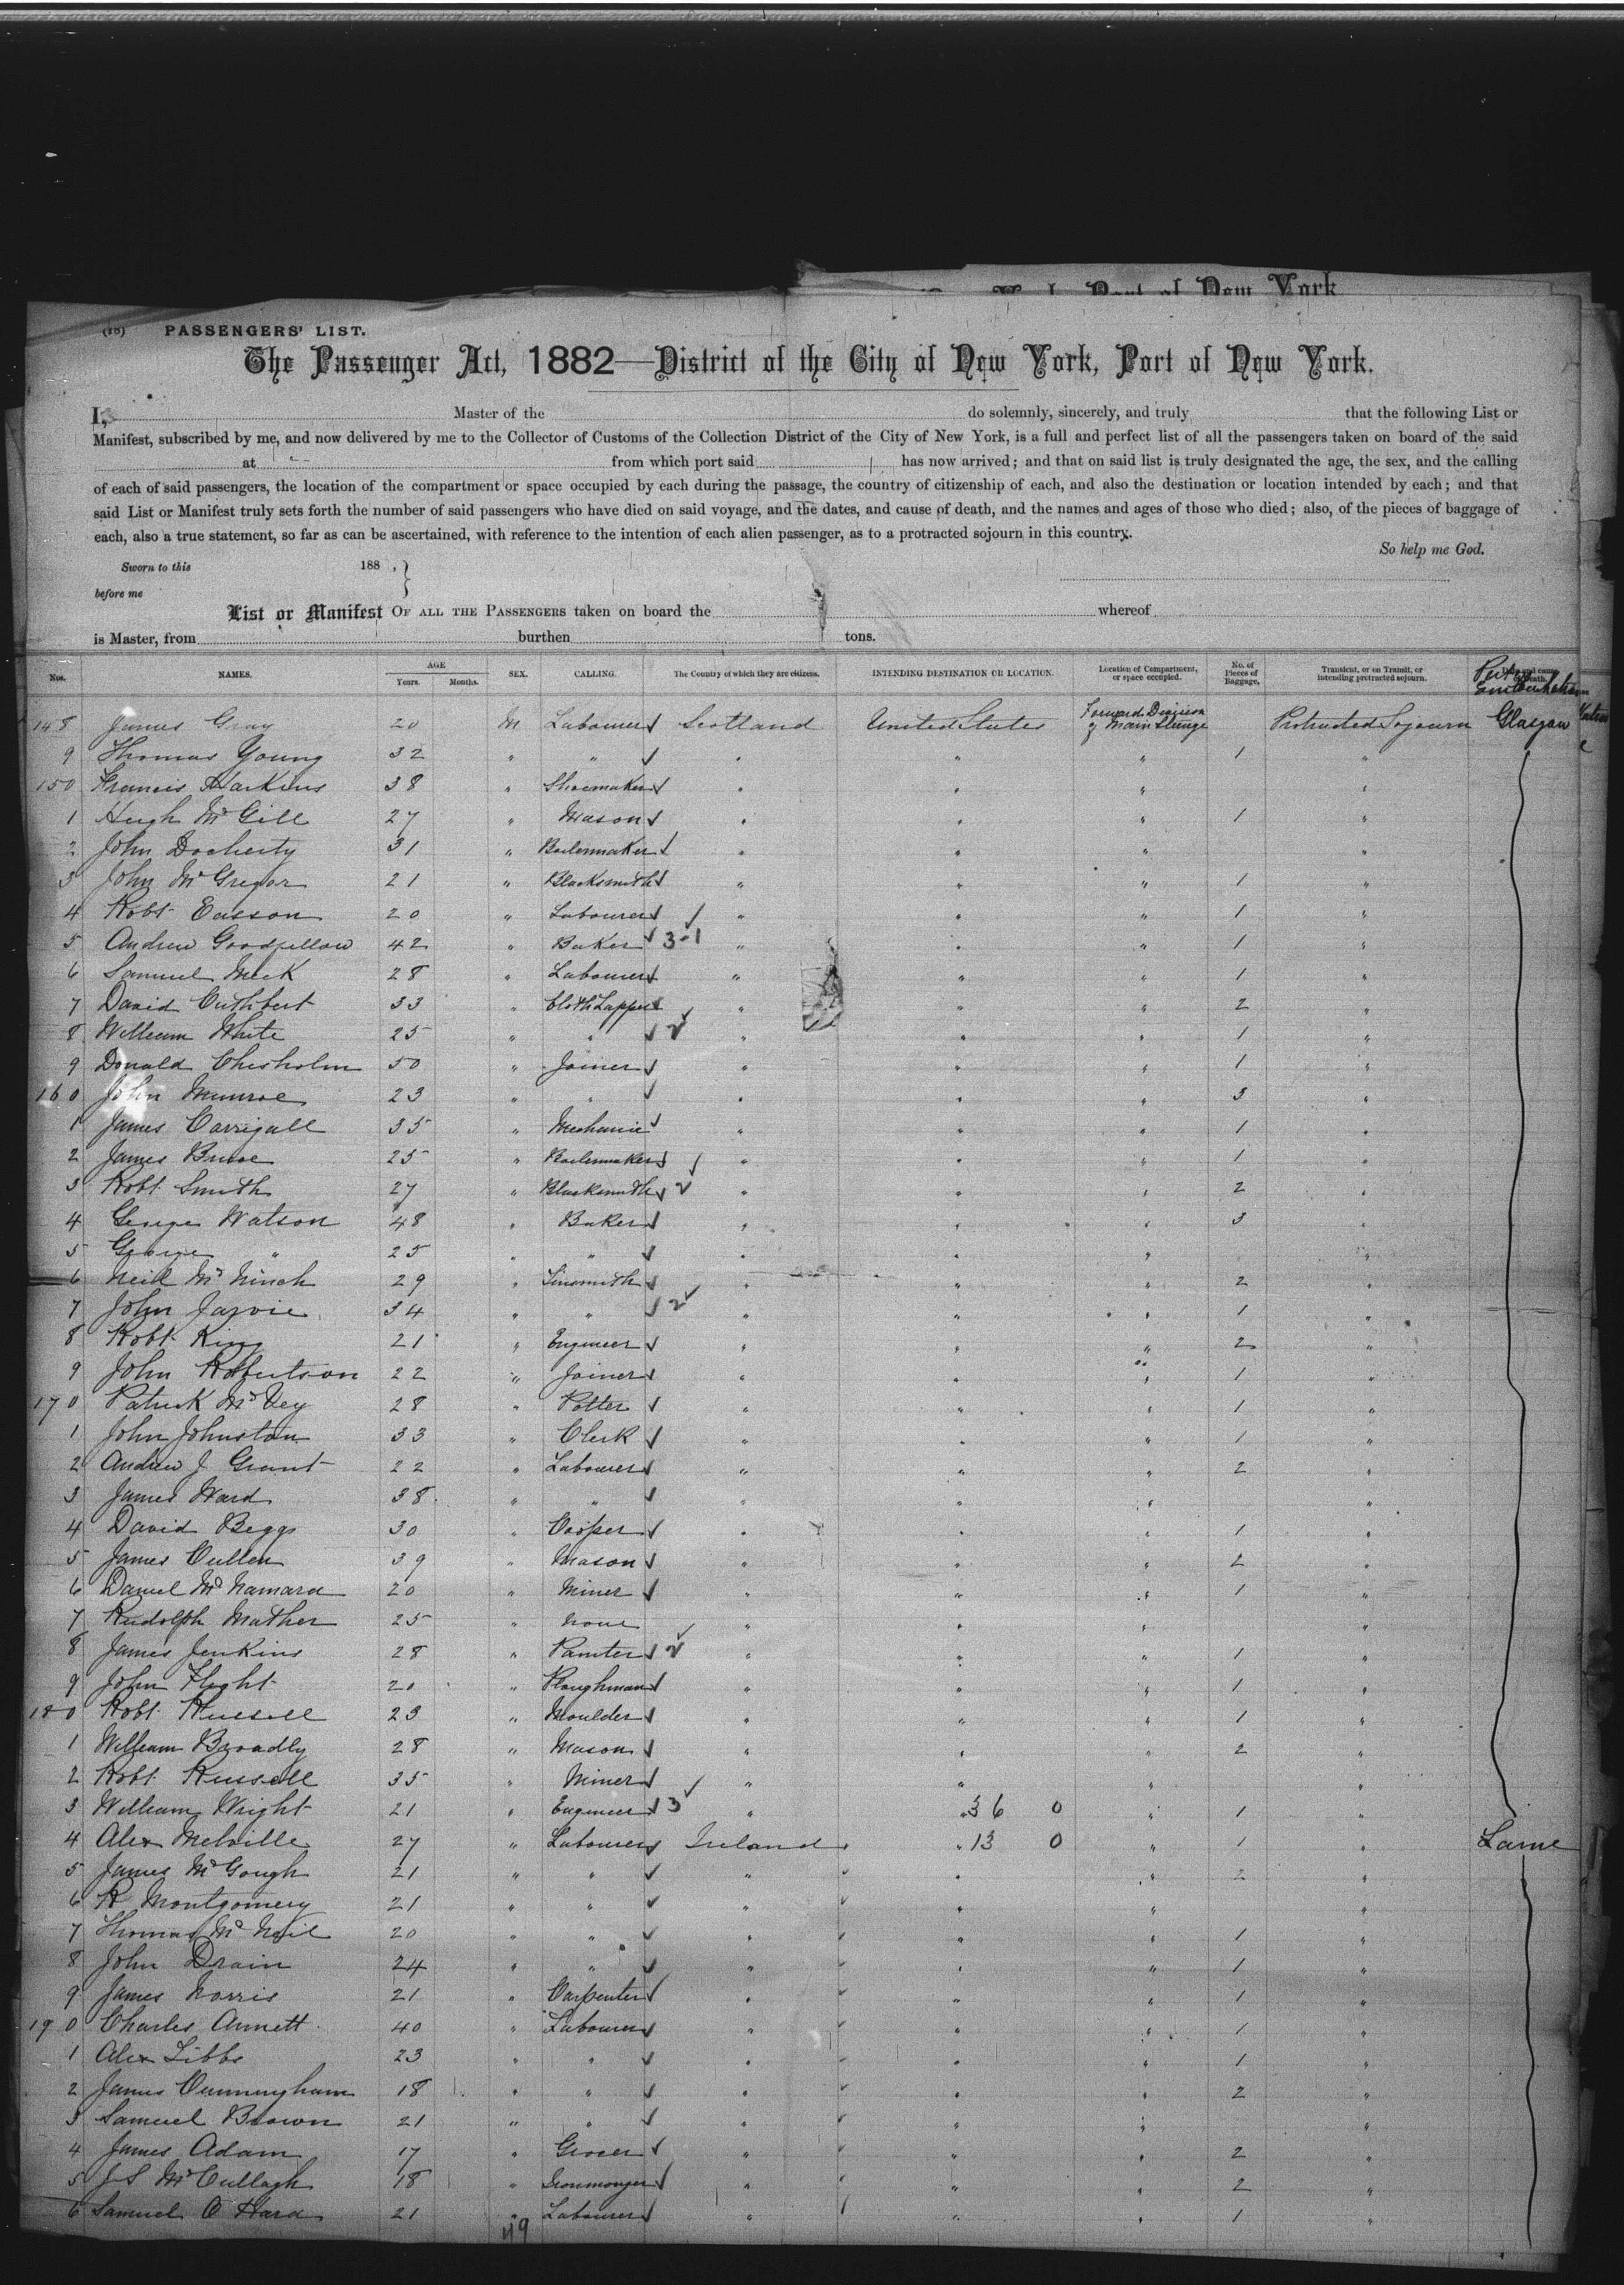 Port of New York
(18) PASSENGERS' LIST.
The Passenger Act, 1882—District of the City of New York, Port of New York.
I, Master of the do solemnly, sincerely, and truly that the following List or
Manifest, subscribed by me, and now delivered by me to the Collector of Customs of the Collection District of the City of New York, is a full and perfect list of all the passengers taken on board of the said
at from which port said has now arrived; and that on said list is truly designated the age, the sex, and the calling
of each of said passengers, the location of the compartment or space occupied by each during the passage, the country of citizenship of each, and also the destination or location intended by each; and that
said List or Manifest truly sets forth the number of said passengers who have died on said voyage, and the dates, and cause of death, and the names and ages of those who died; also, of the pieces of baggage of
each, also a true statement, so far as can be ascertained, with reference to the intention of each alien passenger, as to a protracted sojourn in this country.
So help me God.
Sworn to this 188 ,
before me
List or Manifest OF ALL THE PASSENGERS taken on board the whereof
is Master, from burthen tons.
Nos. NAMES. AGE Years. Months. SEX. CALLING. The Country of which they are citizens. INTENDING DESTINATION OR LOCATION. Location of Compartment, or space occupied. No. of Pieces of Baggage. Transient, or on Transit, or intending protracted sojourn. Port Embarkation
148 James Gray 20 M Labourer Scotland United States Forward Division of Main Steerage Protracted Sojourn Glasgow
9 Thomas Young 32 " " " " " 1 "
150 Francis Harkins 38 " Shoemaker " " " "
1 Hugh McGill 27 " Mason " " " 1 "
2 John Docherty 31 " Boilermaker " " " "
3 John McGregor 21 " Blacksmith " " " 1 "
4 Robt Easson 20 " Labourer " " " 1 "
5 Andrew Goodfellow 42 " Baker 3-1 " " " 1 "
6 Samuel Meek 28 " Labourer " " " 1 "
7 David Cuthbert 33 " Cloth Lapper " " " 2 "
8 William White 25 " " 2 " " " 1 "
9 Donald Chisholm 50 " Joiner " " " 1 "
160 John Munroe 23 " " " " " 3 "
1 James Corrigall 35 " Mechanic " " " 1 "
2 James Bruce 25 " Boilermaker " " " 1 "
3 Robt Smith 27 " Blacksmith 2 " " " 2 "
4 George Watson 48 " Baker " " " 3 "
5 George " 25 " " " " " "
6 Neill McNinch 29 " Tinsmith " " " 2 "
7 John Jarvie 34 " " 2 " " " 1 "
8 Robt King 21 " Engineer " " " 2 "
9 John Robertson 22 " Joiner " " " 1 "
170 Patrick McVey 28 " Potter " " " 1 "
1 John Johnston 33 " Clerk " " " 1 "
2 Andrew J Grant 22 " Labourer " " " 2 "
3 James Ward 38 " " " " " "
4 David Beggs 30 " Cooper " " " 1 "
5 James Cullen 39 " Mason " " " 2 "
6 Daniel McNamara 20 " Miner " " " 1 "
7 Rudolph Mather 25 " None " " " "
8 James Jenkins 28 " Painter 2 " " " 1 "
9 John Flight 20 " Ploughman " " " 1 "
180 Robt Russell 23 " Moulder " " " 1 "
1 William Broadly 28 " Mason " " " 2 "
2 Robt Russell 35 " Miner " " " "
3 William Wright 21 " Engineer 3 " " 36 0 " 1 "
4 Alex Melville 27 " Labourer Ireland " 13 0 " 1 " Larne
5 James McGough 21 " " " " " 2 "
6 R Montgomery 21 " " " " " "
7 Thomas McNeil 20 " " " " " 1 "
8 John Drain 24 " " " " " 1 "
9 James Norris 21 " Carpenter " " " 1 "
190 Charles Annett 40 " Labourer " " " 1 "
1 Alex Tibbs 23 " " " " " 1 "
2 James Cunningham 18 " " " " " 2 "
3 Samuel Brown 21 " " " " " "
4 James Adam 17 " Grocer " " " 2 "
5 J S McCullagh 18 " Ironmonger " " " 2 "
6 Samuel O Hara 21 " Labourer " " " 1 "
49